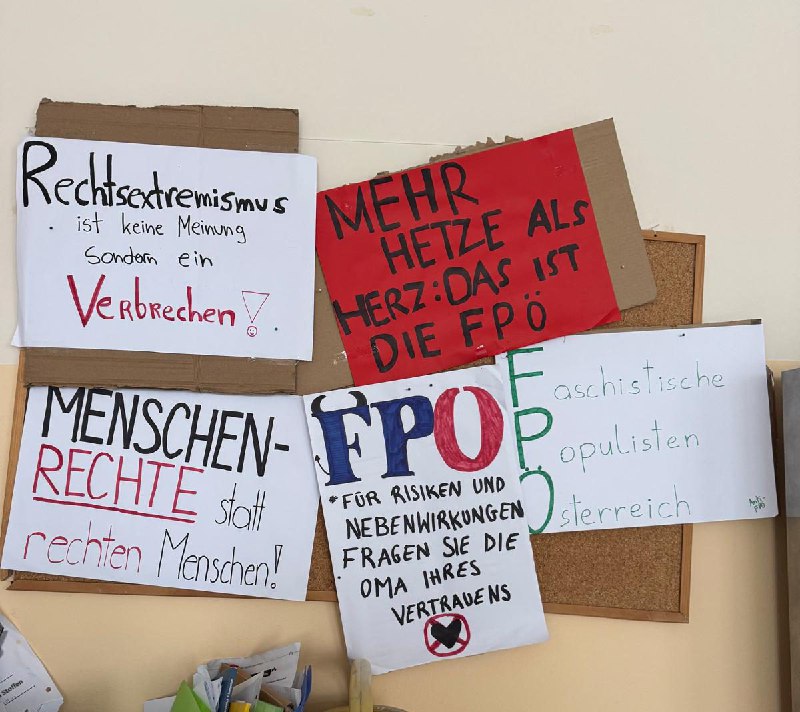 Rechtsextremismus
ist keine Meinung
Sondern ein
Verbrechen!
MEHR
HETZE ALS
HERZ: DAS IST
DIE FPÖ
MENSCHEN-
RECHTE statt
rechten Menschen!
FPÖ
*FÜR RISIKEN UND
NEBENWIRKUNGEN
FRAGEN SIE DIE
OMA IHRES
VERTRAUENS
Faschistische
Populisten
Österreich